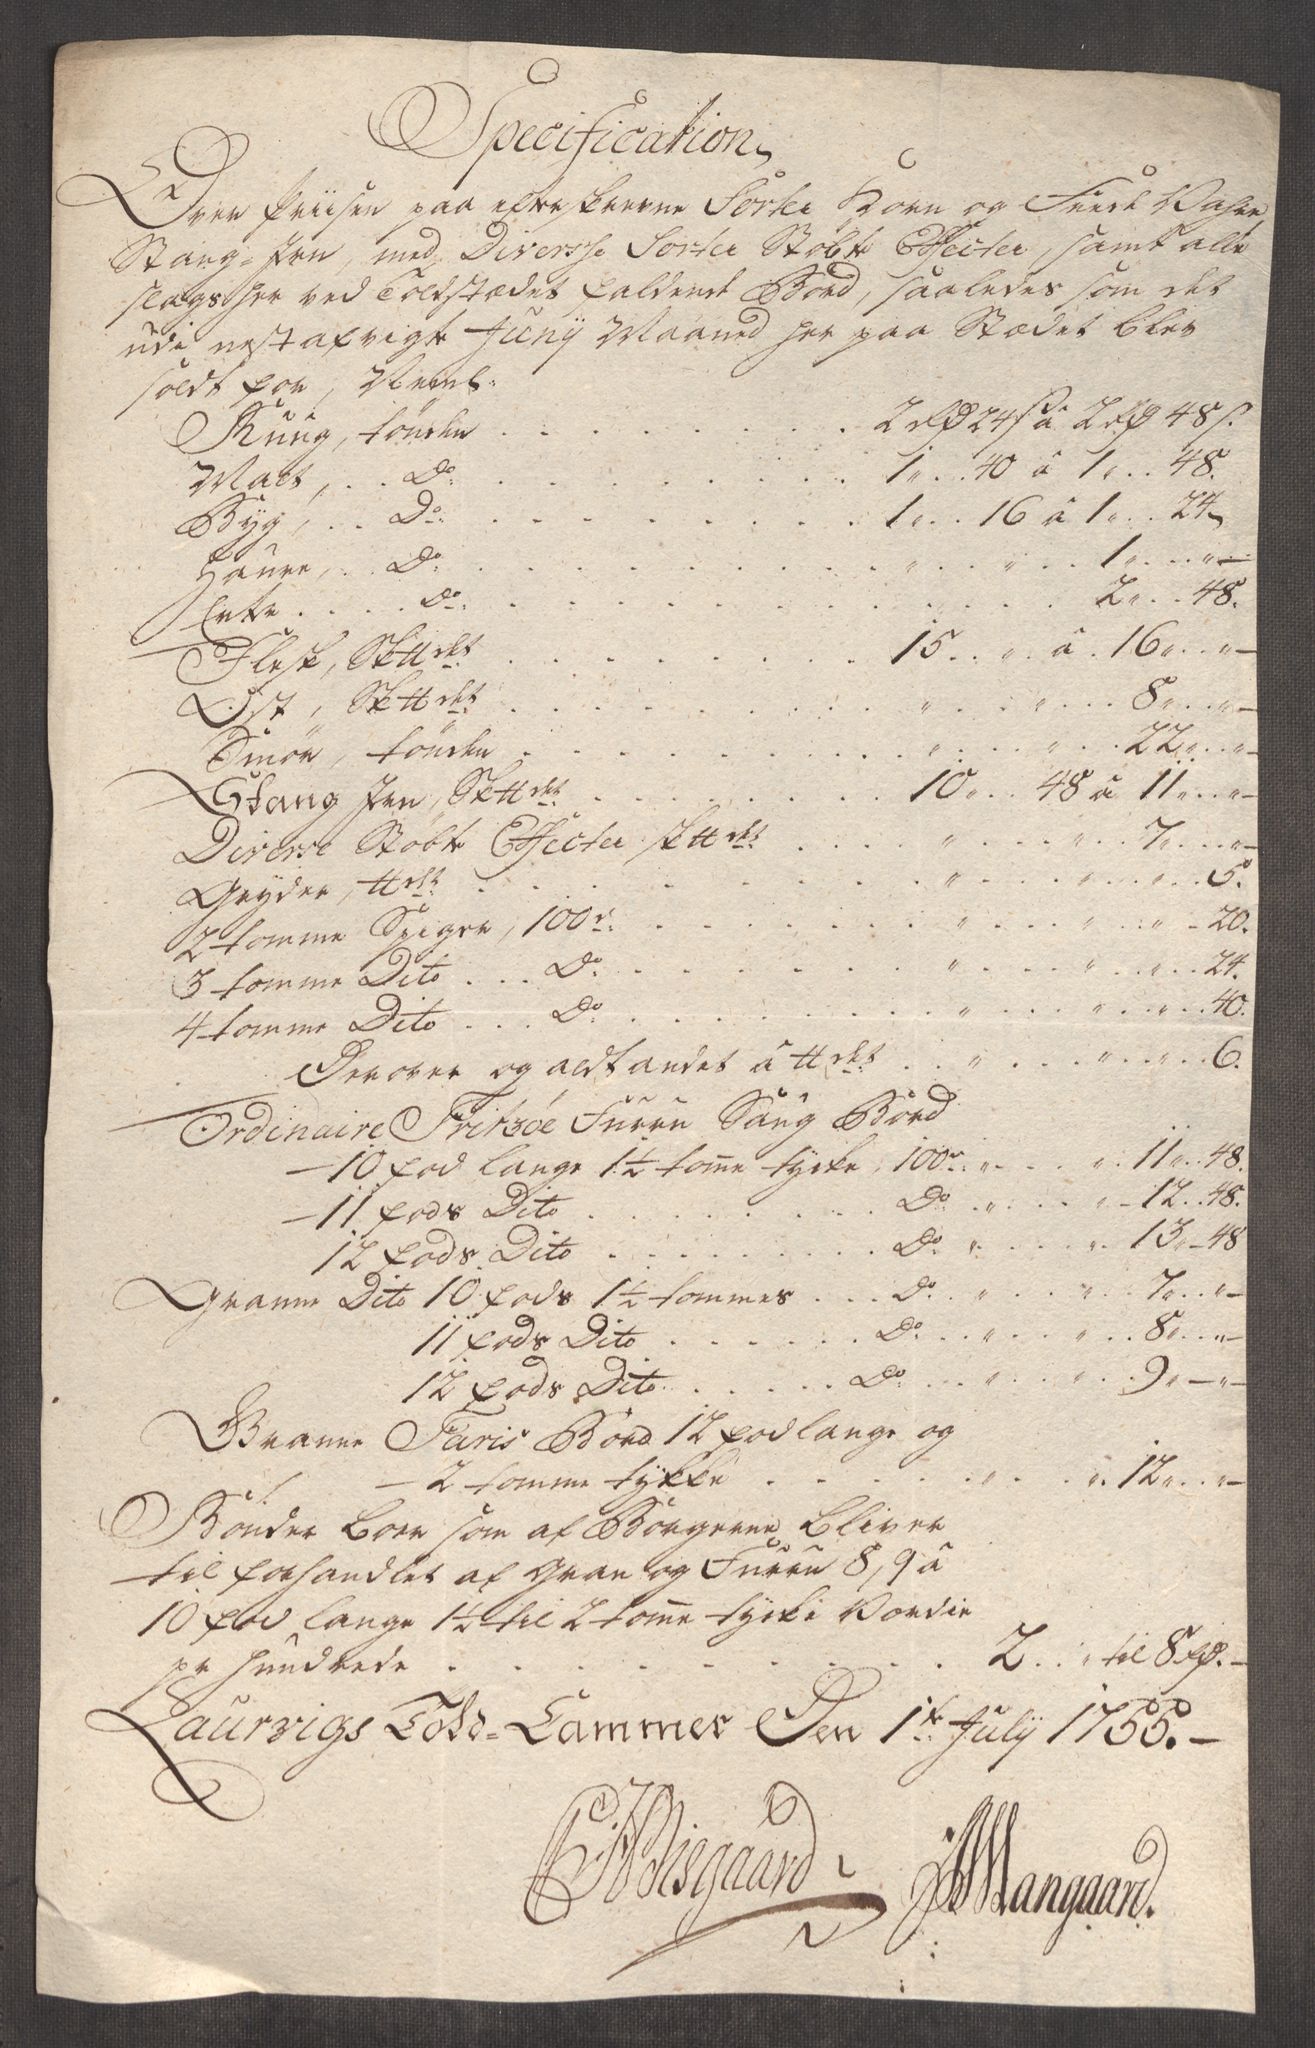 Specification,
Over Priisen paa efterskrevne Sorter Korn og Feede Vahre
Stang-Jern, med Diversse Sorter Støbte Effecter, samt alle
slags her ved Toldstædet faldende Bord, saaledes som det
udi nestafvigte Junij Maaned her paa Stædet blev
soldt for, Neml:
Rug, tønden . . . 2 rd 24 s à 2 rd 48 s.
Malt, . . Do . . . 1 „ 40 à 1 „ 48.
Byg, . . Do . . . 1 „ 16 à 1 „ 24,
Haure, . . Do . . . „ „ 1 „ „ —
Erter . . . . Do . . . 2 „ 48.
Flesk, Sk℔det . . . 15 „ à 16 „ „ —
Ost, Sk℔det . . . „ „ 8 „ „ —
Smør, tønden . . . „ „ 22 „ „ —
Stang Jern, Sk℔det . . . 10 „ 48 à 11 „ „ —
Diverse Støbte Effecter Sk℔det . . . „ „ 7 „ „ —
Gryder, ℔det . . . „ „ „ 5.
2 tomme Spiger, 100de . . . „ „ „ 20.
3 tomme Dito . . . Do . . . „ „ „ 24.
4 tomme Dito . . . Do . . . „ „ „ 40.
Derover og aldt andet à ℔det . . „ „ „ 6.
Ordinaire Fritzøe Furru Saug Bord
— 10 fod lange 1½ tomme tycke, 100de „ „ 11 „ 48.
— 11 fods Dito . . . Do „ „ 12 „ 48.
12 fods Dito . . . Do „ „ 13 „ 48
Granne Dito 10 fods 1½ tommes . . . Do „ „ 7 „ „ —
11 fods Dito . . . Do „ „ 8 „ „ —
12 fods Dito . . . Do „ „ 9 „ „ —
Granne Taris Bord 12 fod lange og
— 2 tomme tykke . . . „ „ 12 „ „ —
Bønder Bord som af Borgerne bliver
til forhandlet af Gran og Furru 8, 9 à
10 fod lange 1½ til 2 tomme tycke Vordie
pr hundrede . . . 2 . . „ til 8 rd. —
Laurvigs Told-Cammer Den 1te July 1755. —
Wisgaard JMangaard.